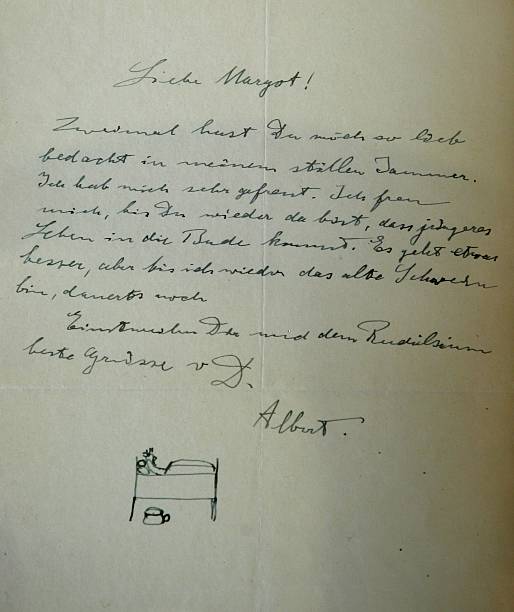 Liebe Margot!
Zweimal hast Du mich so lieb
bedacht in meinem stillen Jammer.
Ich hab mich sehr gefreut. Ich freu
mich, bis Du wieder da bist, dass jüngeres
Leben in die Bude kommt. Es geht etwas
besser, aber bis ich wieder das alte Schwein
bin, dauerts noch
Einstweilen Dir und dem
beste Grüsse v D.
Albert.